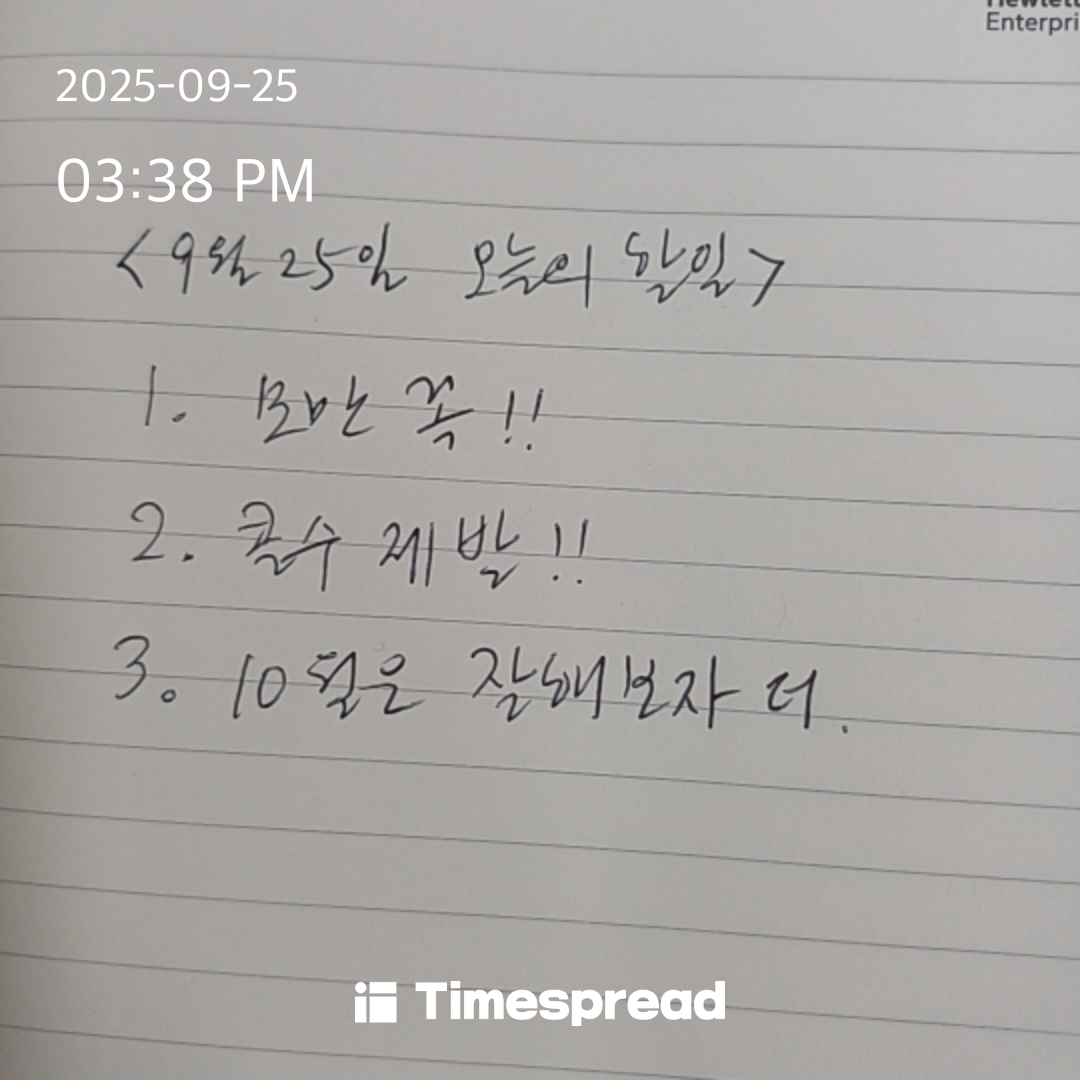 Hewlett
Enterpri
2025-09-25
03:38 PM
<9월 25일 오늘의 할일>
1. 보반 꼭!!
2. 콜수 제발!!
3. 10월은 잘해보자 더.
Timespread